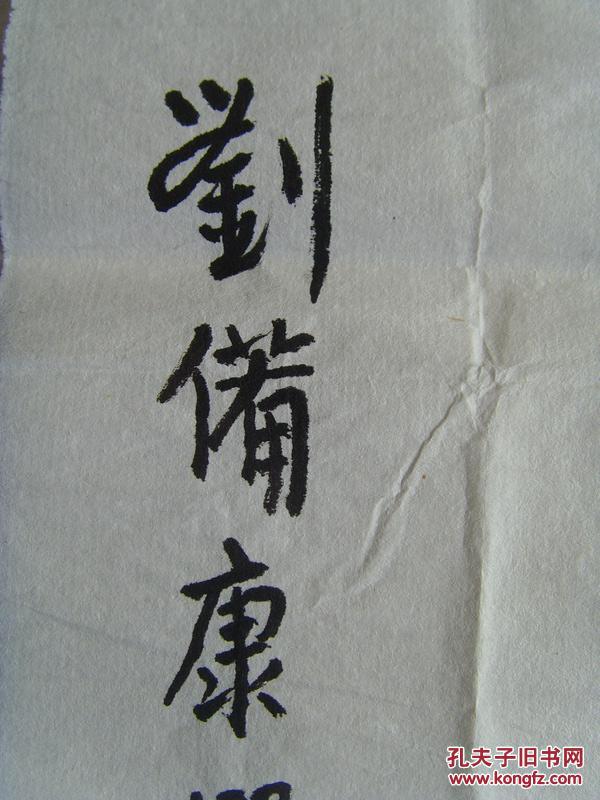 劉備康
孔夫子旧书网
www.kongfz.com